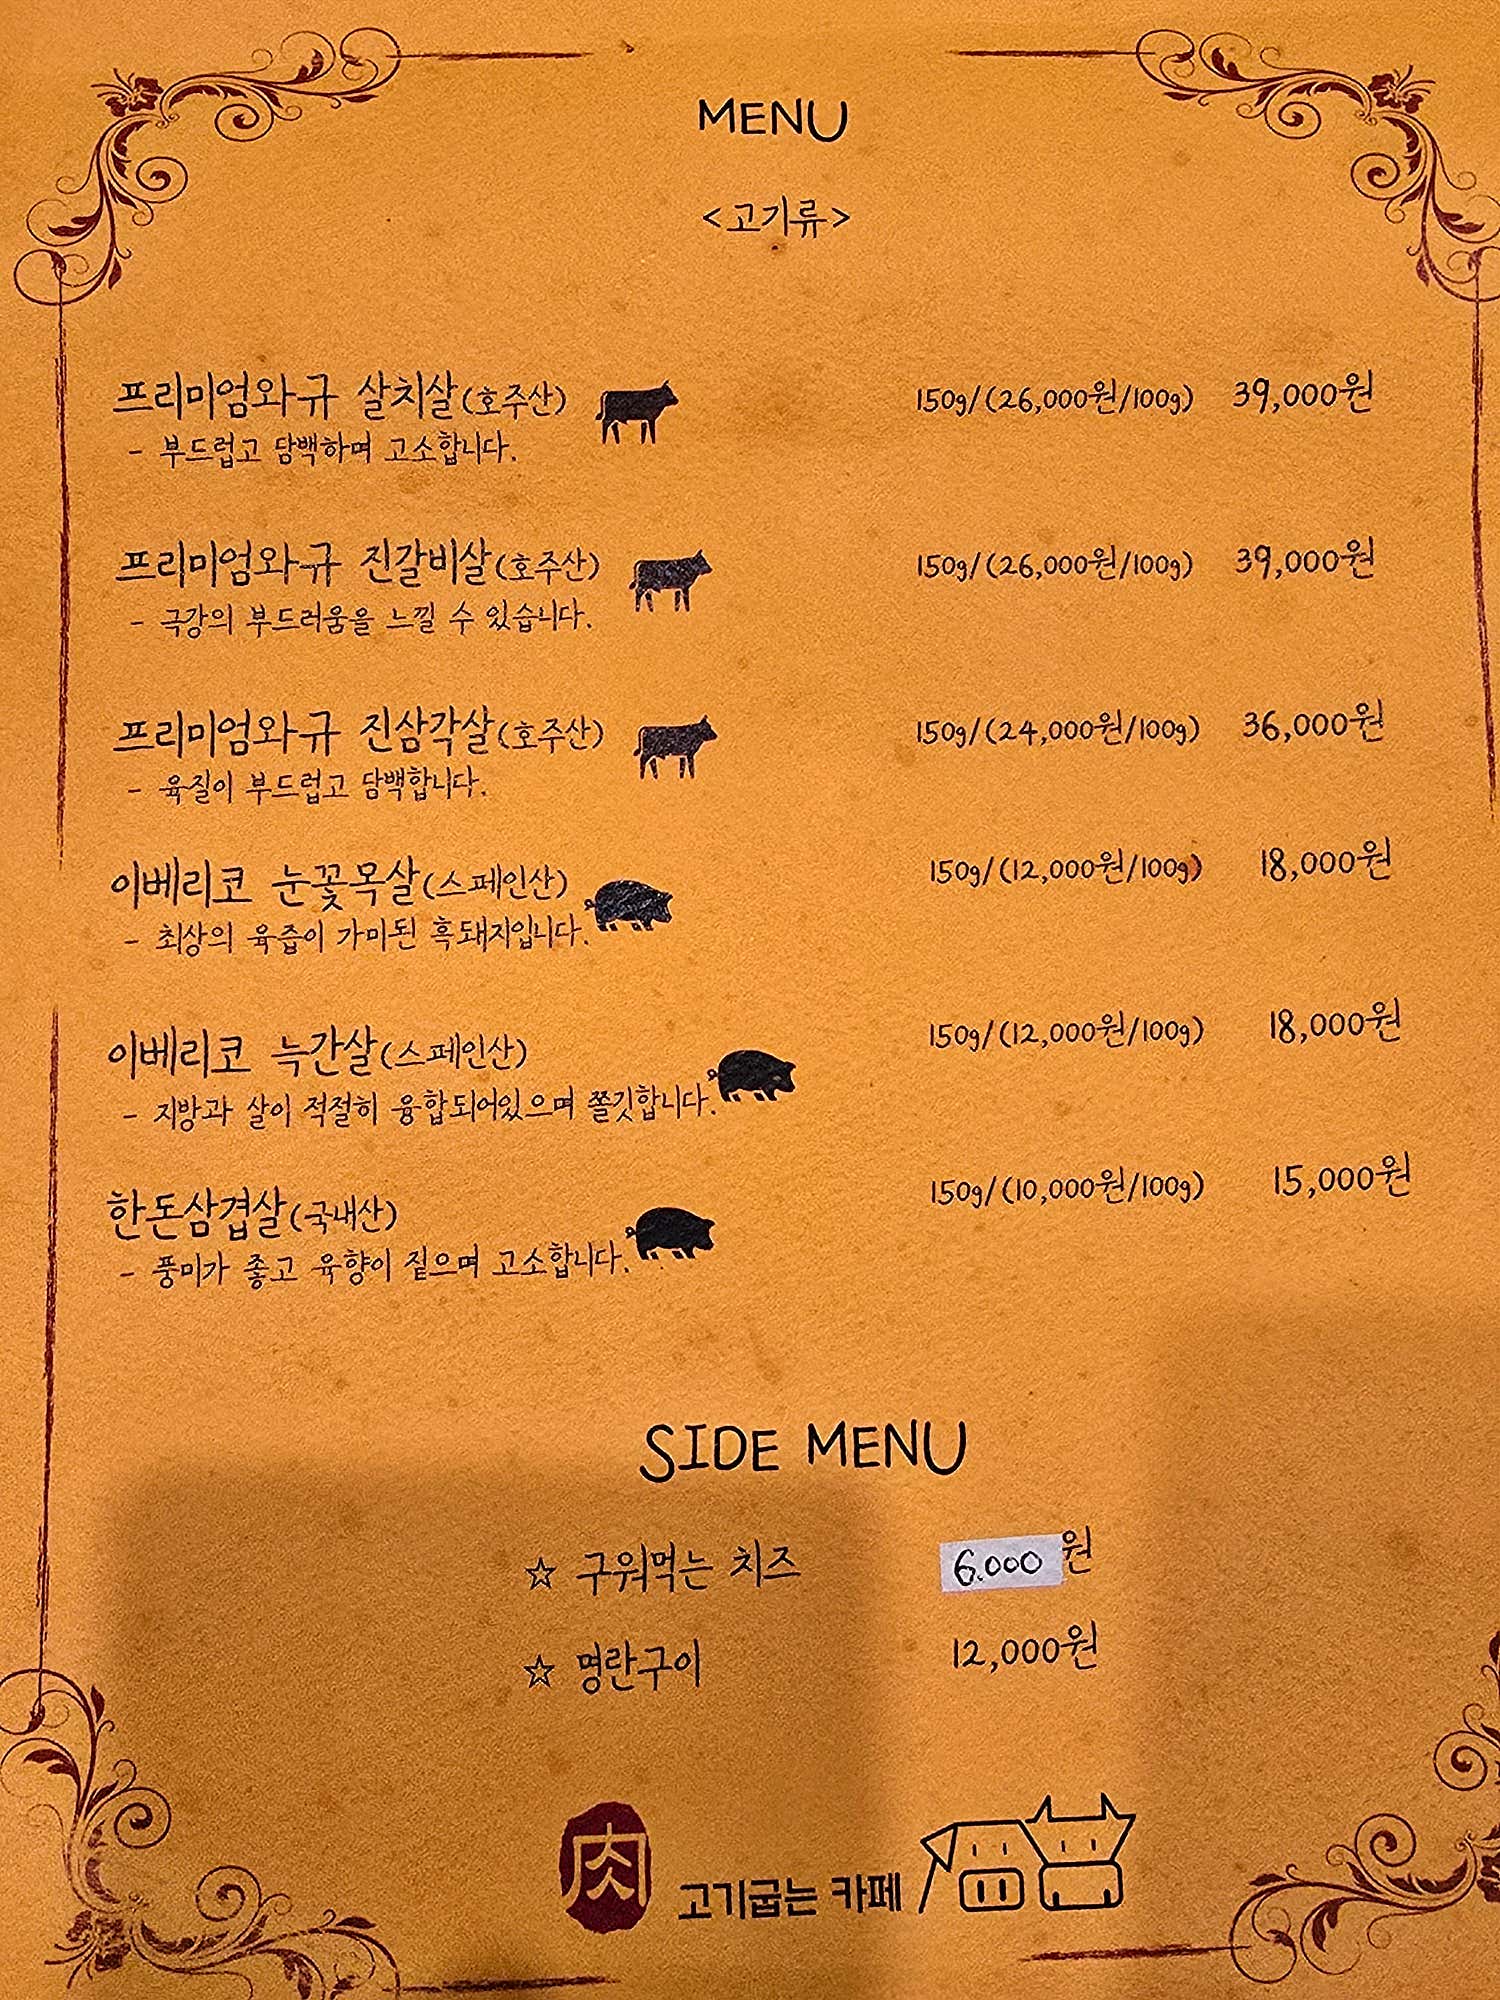 MENU
<고기류>
프리미엄와규 살치살(호주산) 150g/(26,000원/100g) 39,000원
- 부드럽고 담백하며 고소합니다.
프리미엄와규 진갈비살(호주산) 150g/(26,000원/100g) 39,000원
- 극강의 부드러움을 느낄 수 있습니다.
프리미엄와규 진삼각살(호주산) 150g/(24,000원/100g) 36,000원
- 육질이 부드럽고 담백합니다.
이베리코 눈꽃목살(스페인산) 150g/(12,000원/100g) 18,000원
- 최상의 육즙이 가미된 흑돼지입니다.
이베리코 늑간살(스페인산) 150g/(12,000원/100g) 18,000원
- 지방과 살이 적절히 융합되어있으며 쫄깃합니다.
한돈삼겹살(국내산) 150g/(10,000원/100g) 15,000원
- 풍미가 좋고 육향이 짙으며 고소합니다.
SIDE MENU
☆ 구워먹는 치즈 6.000원
☆ 명란구이 12,000원
肉 고기굽는 카페